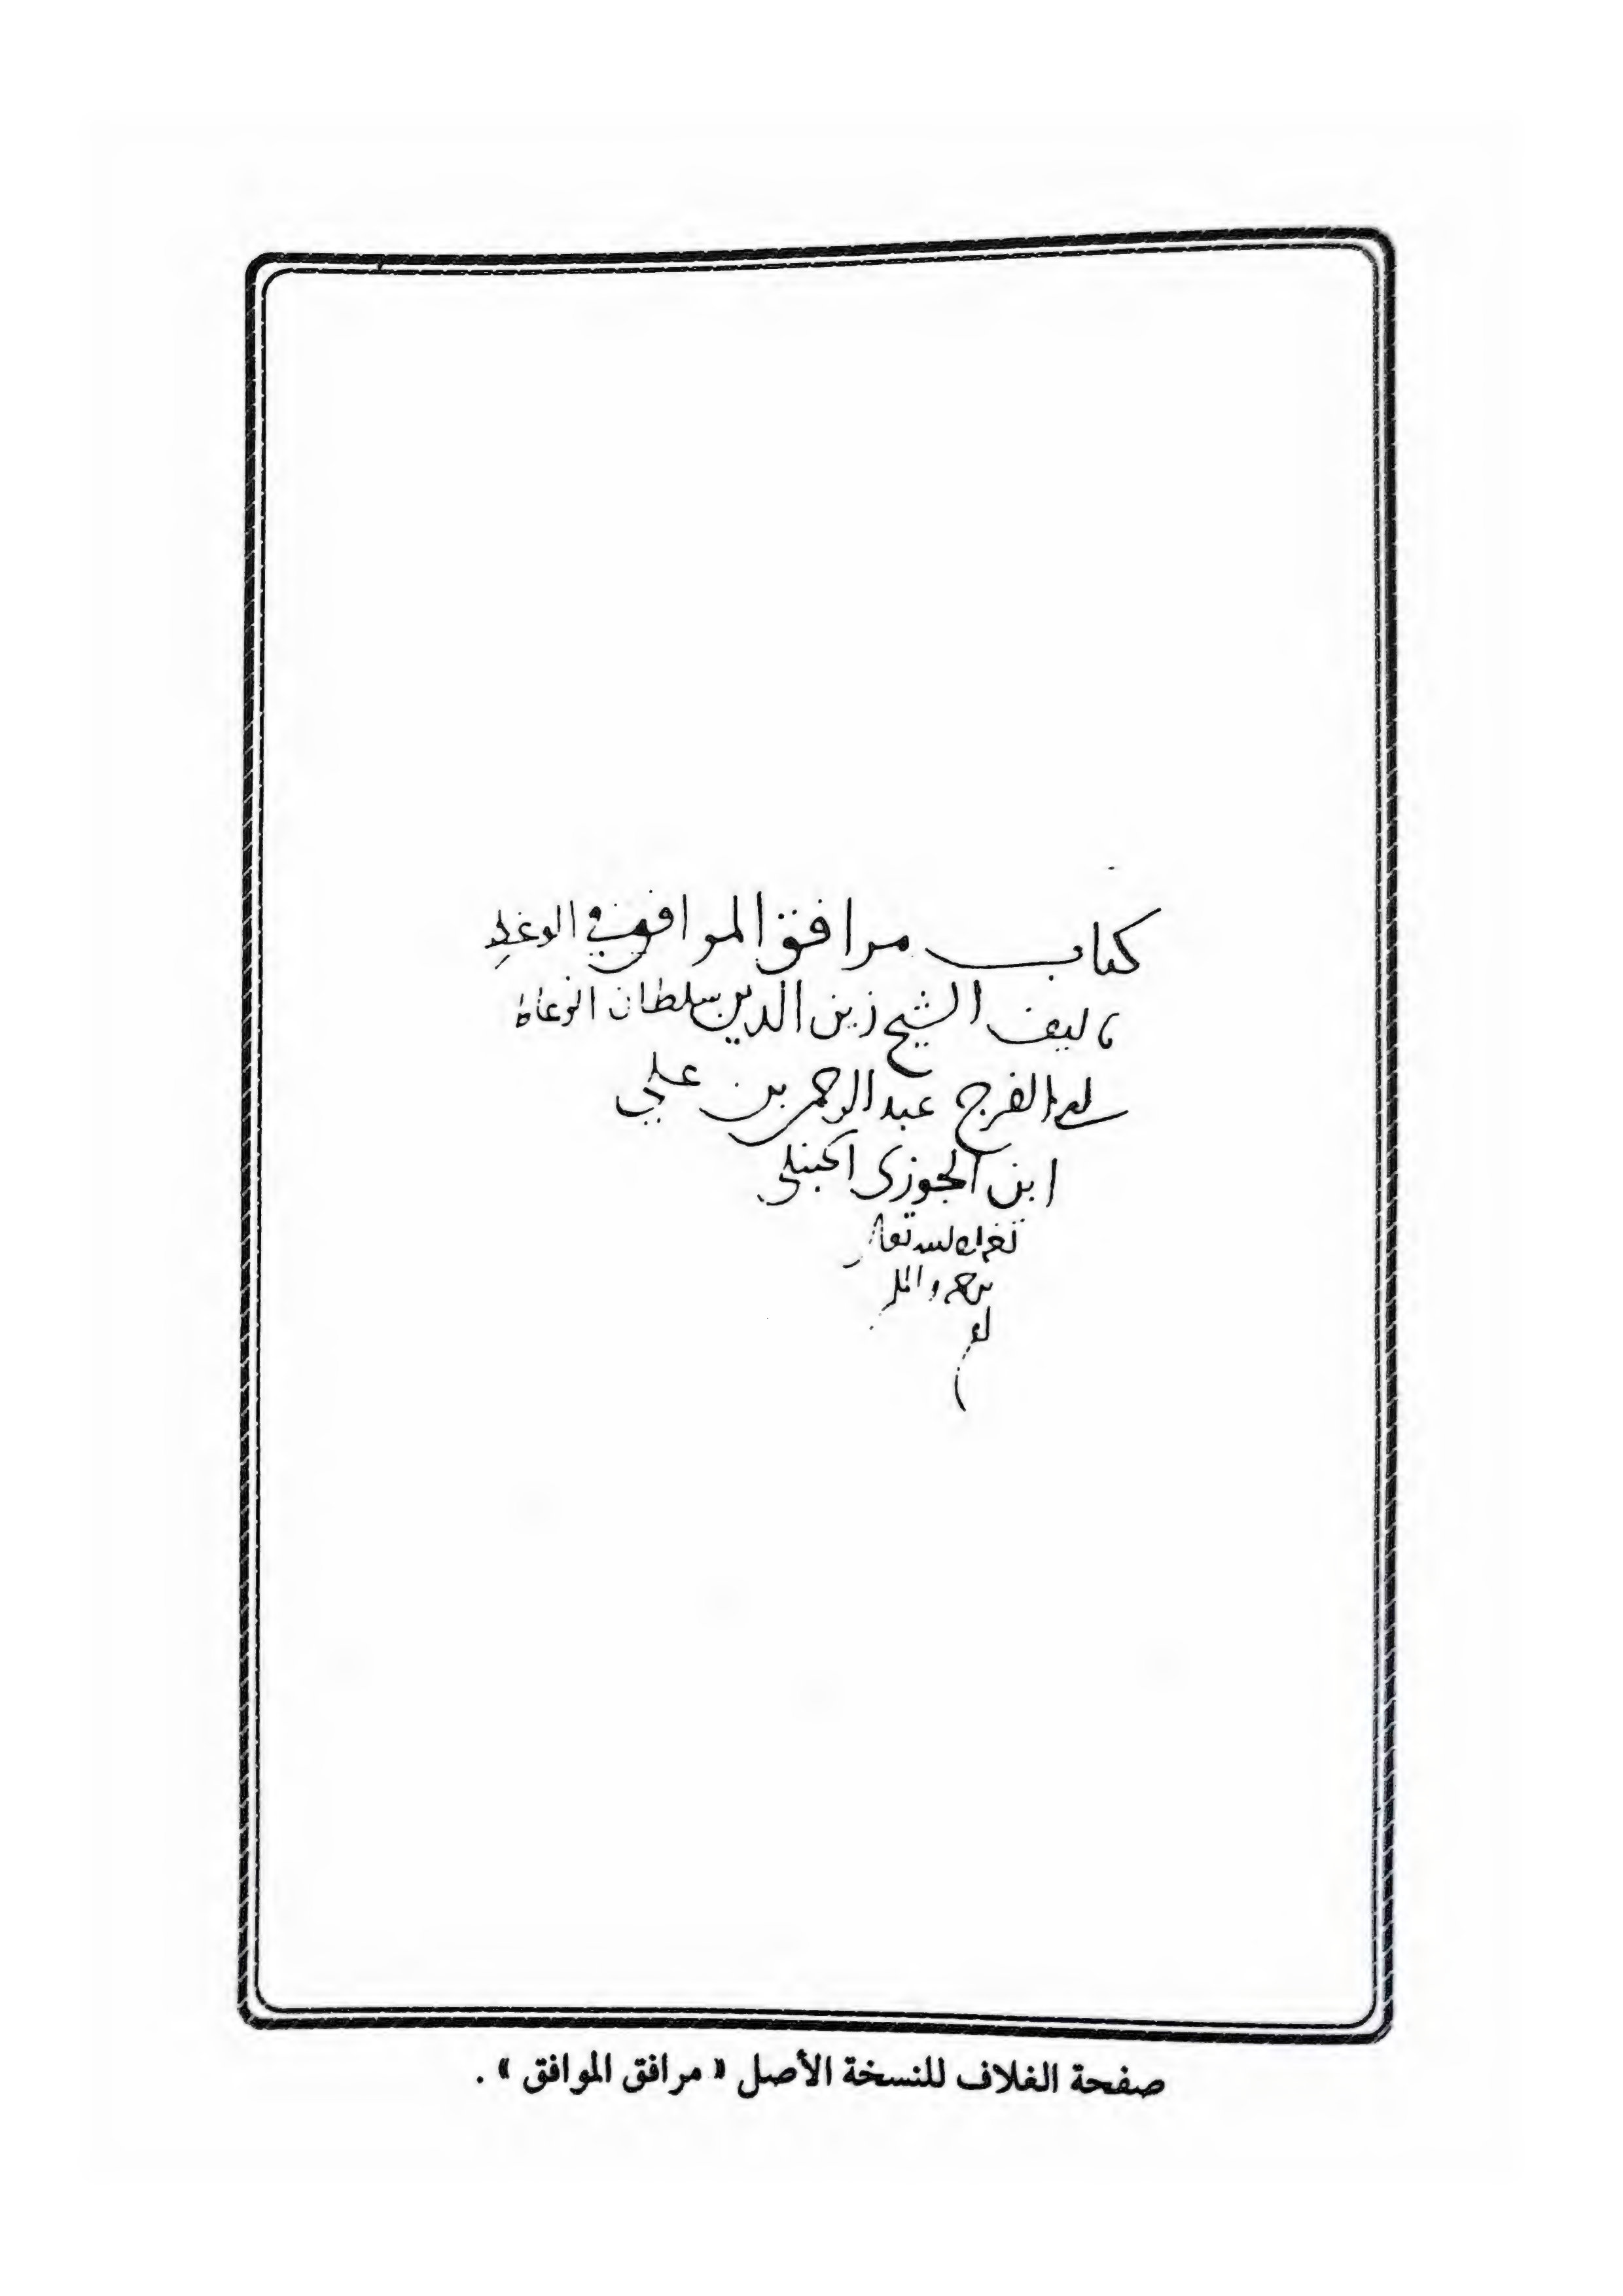 كتاب مرافق الموافق في الوعظ
تاليف الشيخ زين الدين سلطان الوعاظ
ابو الفرج عبد الرحمن بن علي
ابن الجوزي الحنبلي
تغمده الله تعالى
برحمته
صفحة الغلاف للنسخة الأصل « مرافق الموافق » .